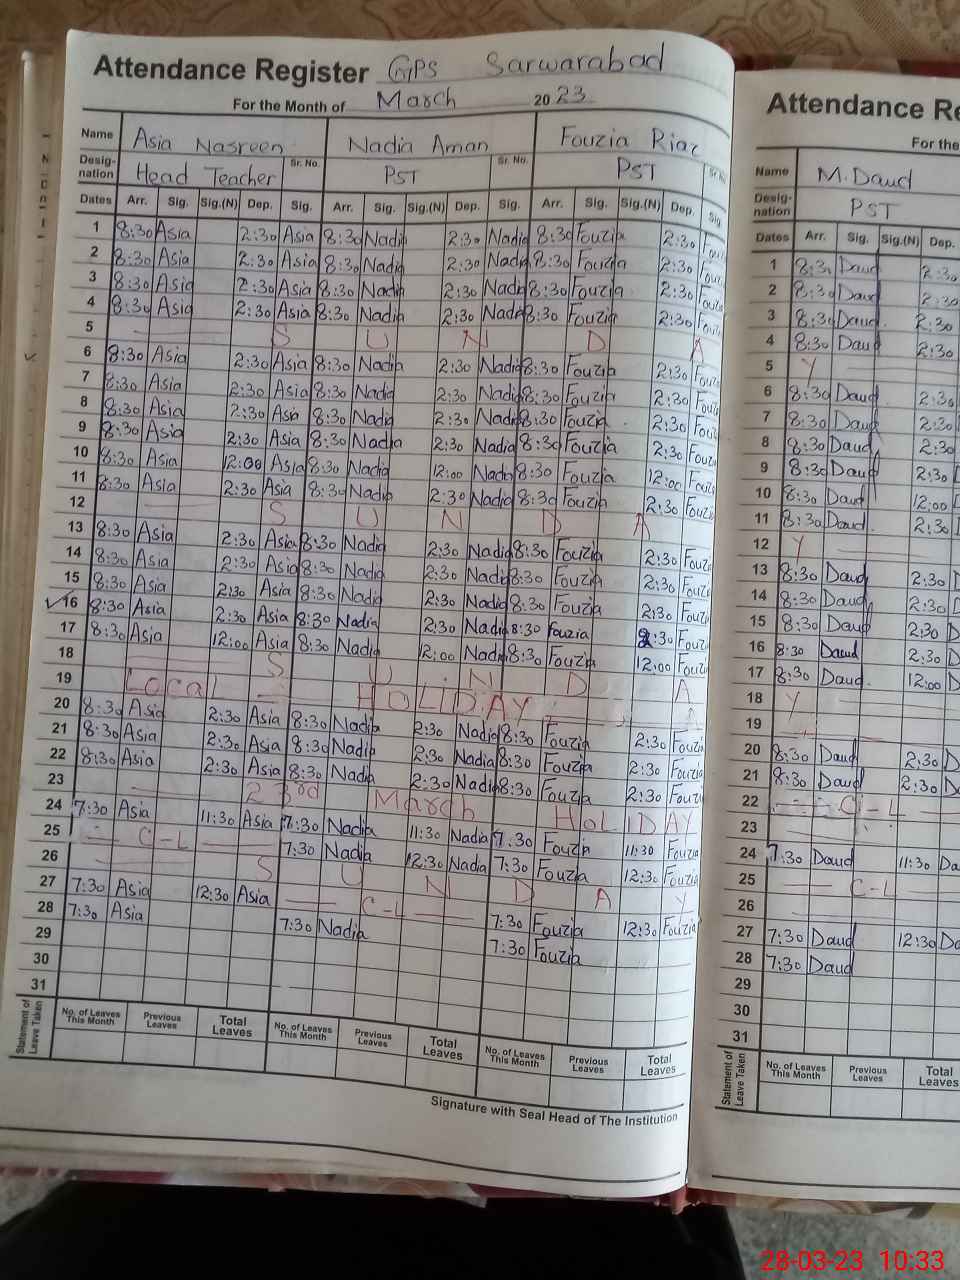 Attendance Register GPS Sarwarabad
For the Month of March 2023
Name Asia Nasreen Nadia Aman Fouzia Riaz
Designation Head Teacher Sr. No. PST Sr. No. PST Sr. No.
Dates Arr. Sig. Sig.(N) Dep. Sig. Arr. Sig. Sig.(N) Dep. Sig. Arr. Sig. Sig.(N) Dep. Sig.
1 8:30 Asia 2:30 Asia 8:30 Nadia 2:30 Nadia 8:30 Fouzia 2:30 Fouzi
2 8:30 Asia 2:30 Asia 8:30 Nadia 2:30 Nadia 8:30 Fouzia 2:30 Fouzi
3 8:30 Asia 2:30 Asia 8:30 Nadia 2:30 Nadia 8:30 Fouzia 2:30 Fouzi
4 8:30 Asia 2:30 Asia 8:30 Nadia 2:30 Nadia 8:30 Fouzia 2:30 Fouzi
5 S U N D A
6 8:30 Asia 2:30 Asia 8:30 Nadia 2:30 Nadia 8:30 Fouzia 2:30 Fouzi
7 8:30 Asia 2:30 Asia 8:30 Nadia 2:30 Nadia 8:30 Fouzia 2:30 Fouzi
8 8:30 Asia 2:30 Asia 8:30 Nadia 2:30 Nadia 8:30 Fouzia 2:30 Fouzi
9 8:30 Asia 2:30 Asia 8:30 Nadia 2:30 Nadia 8:30 Fouzia 2:30 Fouzi
10 8:30 Asia 12:00 Asia 8:30 Nadia 12:00 Nadia 8:30 Fouzia 12:00 Fouzi
11 8:30 Asia 2:30 Asia 8:30 Nadia 2:30 Nadia 8:30 Fouzia 2:30 Fouzi
12 S U N D A
13 8:30 Asia 2:30 Asia 8:30 Nadia 2:30 Nadia 8:30 Fouzia 2:30 Fouzi
14 8:30 Asia 2:30 Asia 8:30 Nadia 2:30 Nadia 8:30 Fouzia 2:30 Fouzi
15 8:30 Asia 2:30 Asia 8:30 Nadia 2:30 Nadia 8:30 Fouzia 2:30 Fouzi
16 8:30 Asia 2:30 Asia 8:30 Nadia 2:30 Nadia 8:30 Fouzia 2:30 Fouzi
17 8:30 Asia 12:00 Asia 8:30 Nadia 12:00 Nadia 8:30 Fouzia 12:00 Fouzi
18 S U N D A
19 Local HOLIDAY
20 8:30 Asia 2:30 Asia 8:30 Nadia 2:30 Nadia 8:30 Fouzia 2:30 Fouzi
21 8:30 Asia 2:30 Asia 8:30 Nadia 2:30 Nadia 8:30 Fouzia 2:30 Fouzi
22 8:30 Asia 2:30 Asia 8:30 Nadia 2:30 Nadia 8:30 Fouzia 2:30 Fouzi
23 23rd March HOLIDAY
24 7:30 Asia 11:30 Asia 7:30 Nadia 11:30 Nadia 7:30 Fouzia 11:30 Fouzia
25 C-L 7:30 Nadia 12:30 Nadia 7:30 Fouzia 12:30 Fouzia
26 S U N D A Y
27 7:30 Asia 12:30 Asia C-L 7:30 Fouzia 12:30 Fouzia
28 7:30 Asia 7:30 Nadia 7:30 Fouzia
29
30
31
Statement of Leave Taken No. of Leaves This Month Previous Leaves Total Leaves No. of Leaves This Month Previous Leaves Total Leaves No. of Leaves This Month Previous Leaves Total Leaves
Signature with Seal Head of The Institution
Attendance Re
For the
Name M.Daud
Designation PST
Dates Arr. Sig. Sig.(N) Dep.
1 8:30 Daud 2:30
2 8:30 Daud 2:30
3 8:30 Daud 2:30
4 8:30 Daud 2:30
5 Y
6 8:30 Daud 2:30
7 8:30 Daud 2:30
8 8:30 Daud 2:30
9 8:30 Daud 2:30
10 8:30 Daud 12:00
11 8:30 Daud 2:30
12 Y
13 8:30 Daud 2:30 D
14 8:30 Daud 2:30 D
15 8:30 Daud 2:30 D
16 8:30 Daud 2:30 D
17 8:30 Daud 12:00 D
18 Y
19
20 8:30 Daud 2:30 D
21 8:30 Daud 2:30 D
22 C-L
23
24 7:30 Daud 11:30 Da
25 C-L
26
27 7:30 Daud 12:30 Da
28 7:30 Daud
29
30
31
Statement of Leave Taken No. of Leaves This Month Previous Leaves Total Leaves
28-03-23 10:33